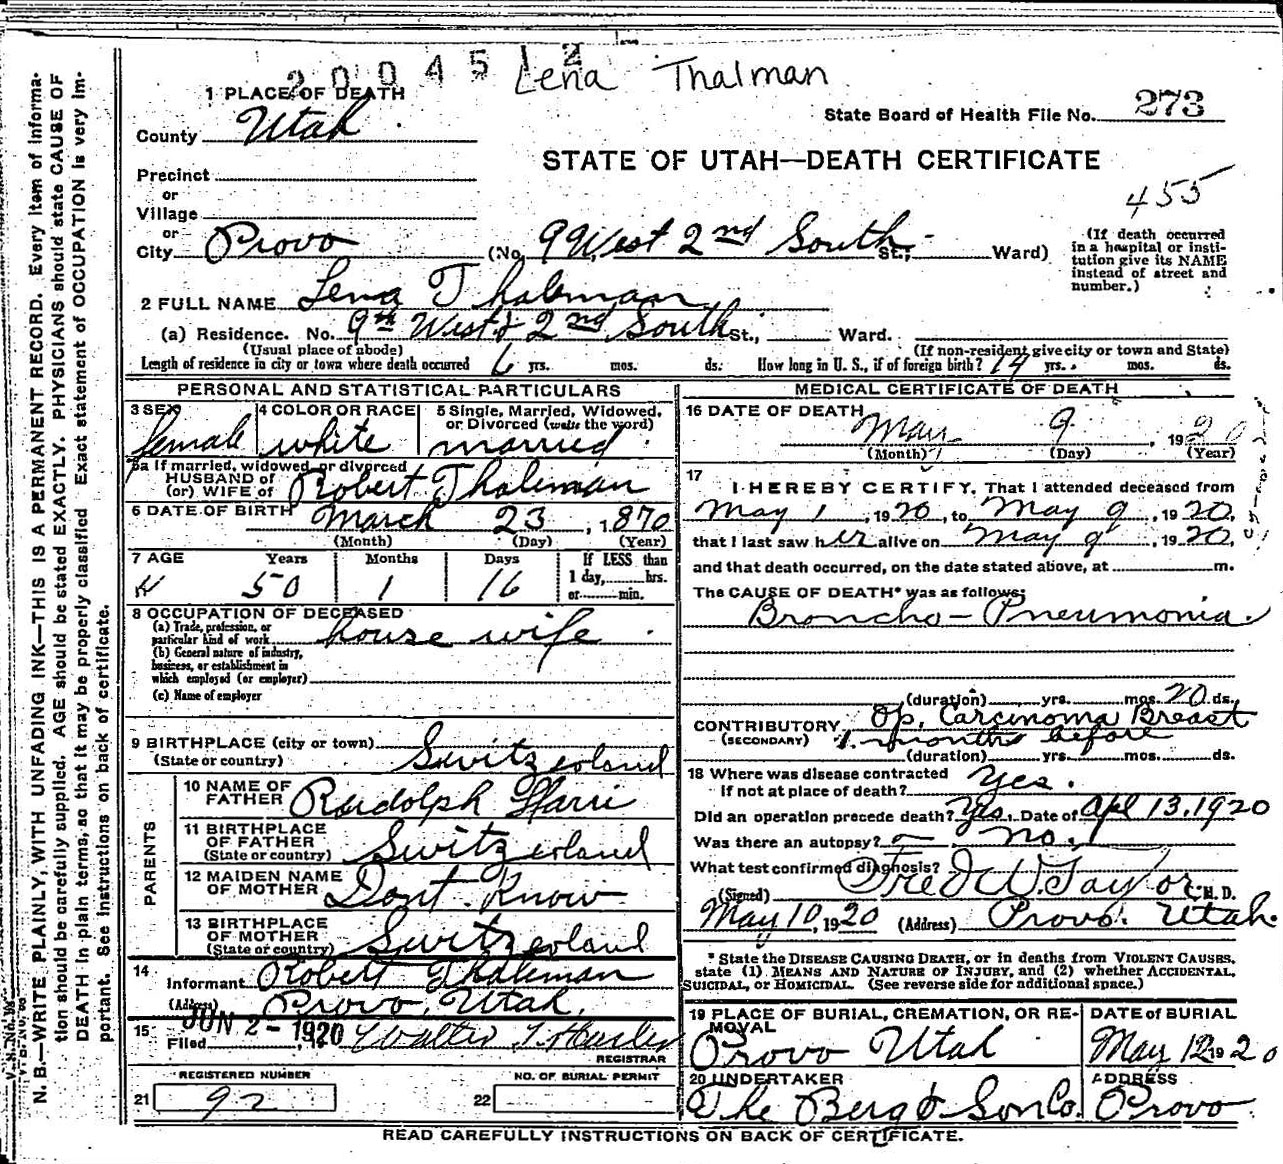 2 0 0 4 5 1 2
Lena Thalman
1 PLACE OF DEATH
County Utah.
State Board of Health File No. 273
STATE OF UTAH—DEATH CERTIFICATE
Precinct
or
Village
or
455
City Provo (No. 9 West 2nd South St.; Ward)
(If death occurred in a hospital or institution give its NAME instead of street and number.)
2 FULL NAME Lena Thalemaan
(a) Residence. No. 9th West & 2nd South St., Ward.
(Usual place of abode) (If non-resident give city or town and State)
Length of residence in city or town where death occurred 6 yrs. mos. ds. How long in U. S., if of foreign birth? 14 yrs. mos. ds.
PERSONAL AND STATISTICAL PARTICULARS
3 SEX female
4 COLOR OR RACE white
5 Single, Married, Widowed, or Divorced (write the word) married
5a If married, widowed or divorced
HUSBAND of
(or) WIFE of Robert Thaleman
6 DATE OF BIRTH March 23, 1870
(Month) (Day) (Year)
7 AGE Years Months Days If LESS than
50 1 16 1 day, hrs.
or min.
8 OCCUPATION OF DECEASED
(a) Trade, profession, or particular kind of work house wife
(b) General nature of industry, business, or establishment in which employed (or employer)
(c) Name of employer
9 BIRTHPLACE (city or town)
(State or country) Switzerland
PARENTS
10 NAME OF FATHER Rudolph
11 BIRTHPLACE OF FATHER
(State or country) Switzerland
12 MAIDEN NAME OF MOTHER Dont Know
13 BIRTHPLACE OF MOTHER
(State or country) Switzerland
14 Informant Robert Thaleman
(Address) Provo, Utah.
15 Filed JUN 2 - 1920, 1920 Walter T. Hasler
REGISTRAR
REGISTERED NUMBER NO. OF BURIAL PERMIT
21 92 22
MEDICAL CERTIFICATE OF DEATH
16 DATE OF DEATH
May 9, 1920
(Month) (Day) (Year)
17 I HEREBY CERTIFY, That I attended deceased from
May 1, 1920, to May 9, 1920,
that I last saw her alive on May 9, 1920,
and that death occurred, on the date stated above, at m.
The CAUSE OF DEATH* was as follows:
Broncho-Pneumonia.
(duration) yrs. mos. 20 ds.
CONTRIBUTORY Op. Carcinoma Breast
(SECONDARY) 1. months before
(duration) yrs. mos. ds.
18 Where was disease contracted
If not at place of death? Yes.
Did an operation precede death? Yes. Date of Apl 13, 1920
Was there an autopsy? — no.
What test confirmed diagnosis?
(Signed) Fred W. Taylor M.D.
May 10, 1920 (Address) Provo. Utah.
* State the DISEASE CAUSING DEATH, or in deaths from VIOLENT CAUSES,
state (1) MEANS AND NATURE OF INJURY, and (2) whether ACCIDENTAL,
SUICIDAL, or HOMICIDAL. (See reverse side for additional space.)
19 PLACE OF BURIAL, CREMATION, OR REMOVAL DATE OF BURIAL
Provo Utah May 12 1920
20 UNDERTAKER ADDRESS
The Berg & Son Co. Provo.
READ CAREFULLY INSTRUCTIONS ON BACK OF CERTIFICATE.
N. B.—WRITE PLAINLY, WITH UNFADING INK—THIS IS A PERMANENT RECORD. Every item of informa-
tion should be carefully supplied. AGE should be stated EXACTLY. PHYSICIANS should state CAUSE OF
DEATH in plain terms, so that it may be properly classified. Exact statement of OCCUPATION is very im-
portant. See instructions on back of certificate.